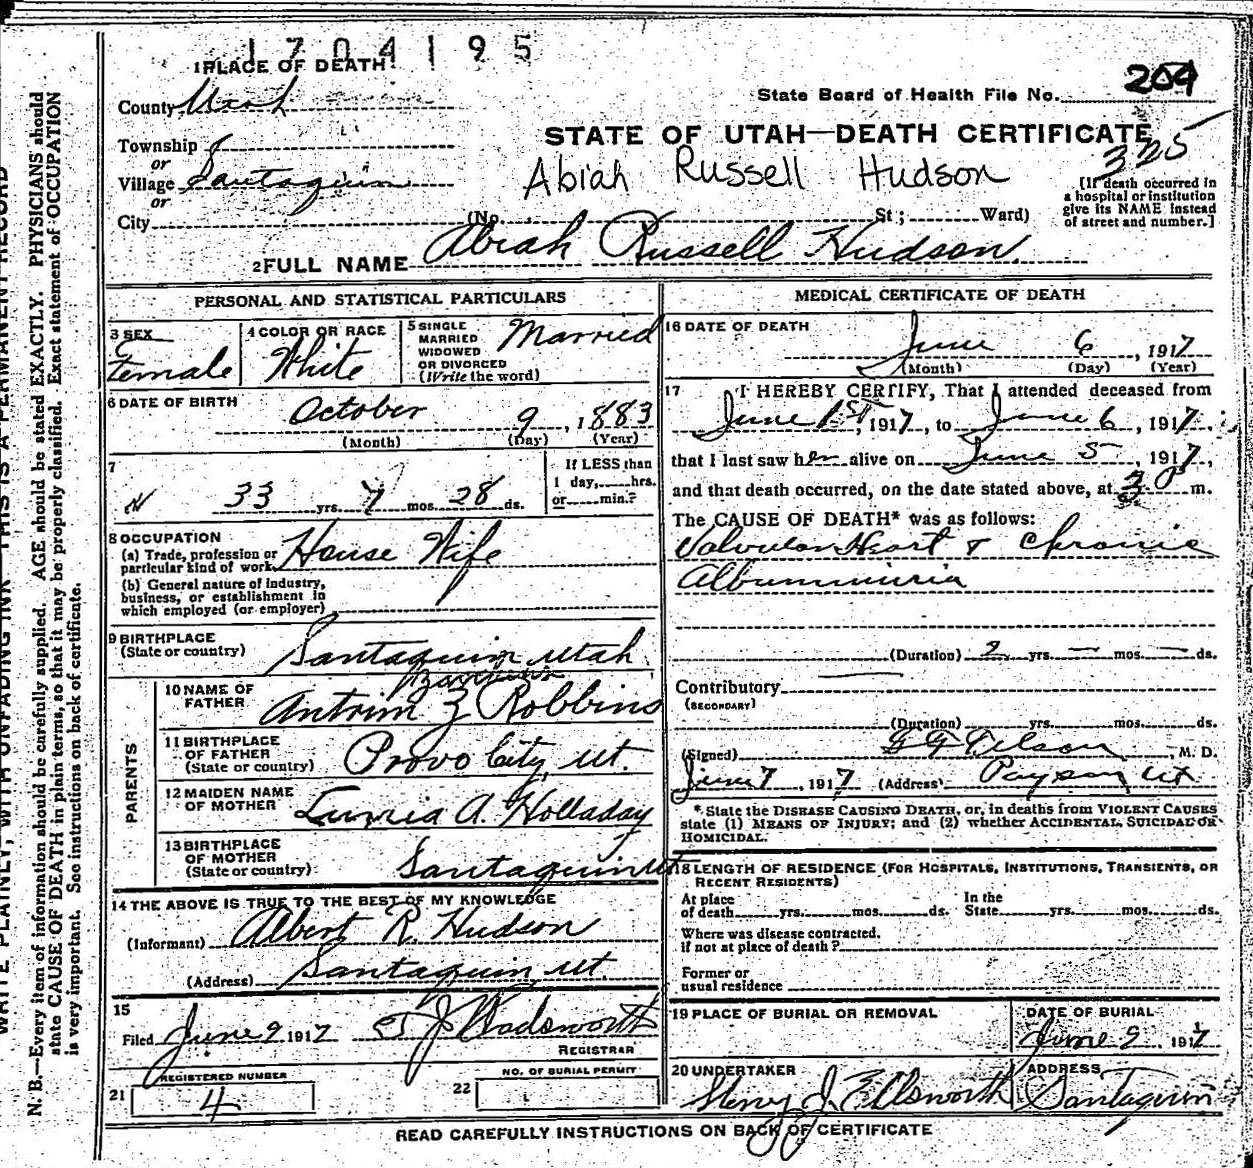 1704195
1 PLACE OF DEATH
County Utah
State Board of Health File No. 204
Township
or
Village Santaquin
or
City
STATE OF UTAH—DEATH CERTIFICATE
325
Abiah Russell Hudson
(No. St; Ward)
[If death occurred in
a hospital or institution
give its NAME instead
of street and number.]
2 FULL NAME Abiah Russell Hudson.
PERSONAL AND STATISTICAL PARTICULARS
3 SEX
Female
4 COLOR OR RACE
White
5 SINGLE
MARRIED
WIDOWED
OR DIVORCED
(Write the word)
Married
6 DATE OF BIRTH
October 9, 1883
(Month) (Day) (Year)
7
33 yrs. 7 mos. 28 ds.
If LESS than
1 day, hrs.
or min.?
8 OCCUPATION
(a) Trade, profession or
particular kind of work House Wife
(b) General nature of industry,
business, or establishment in
which employed (or employer)
9 BIRTHPLACE
(State or country) Santaquin Utah
PARENTS
10 NAME OF
FATHER
Antrim Z Robbins
11 BIRTHPLACE
OF FATHER
(State or country) Provo City, Ut.
12 MAIDEN NAME
OF MOTHER A. Holladay
13 BIRTHPLACE
OF MOTHER
(State or country) Santaquin Ut
14 THE ABOVE IS TRUE TO THE BEST OF MY KNOWLEDGE
(Informant) Albert R. Hudson
(Address) Santaquin Ut.
15
Filed June 9 1917 Wadsworth
REGISTRAR
REGISTERED NUMBER
21 4
NO. OF BURIAL PERMIT
22
MEDICAL CERTIFICATE OF DEATH
16 DATE OF DEATH
June 6, 1917
(Month) (Day) (Year)
17 I HEREBY CERTIFY, That I attended deceased from
June 1st, 1917, to June 6, 1917,
that I last saw her alive on June 5 1917,
and that death occurred, on the date stated above, at 3 P m.
The CAUSE OF DEATH* was as follows:
Valvular Heart & Chronic
Albuminuria
(Duration) 2 yrs. — mos. — ds.
Contributory
(SECONDARY)
(Duration) yrs. mos. ds.
(Signed) M. D.
June 7, 1917 (Address) Payson Ut
*State the DISEASE CAUSING DEATH, or, in deaths from VIOLENT CAUSES
state (1) MEANS OF INJURY; and (2) whether ACCIDENTAL, SUICIDAL OR
HOMICIDAL.
18 LENGTH OF RESIDENCE (FOR HOSPITALS, INSTITUTIONS, TRANSIENTS, OR
RECENT RESIDENTS)
At place
of death yrs. mos. ds.
In the
State yrs. mos. ds.
Where was disease contracted,
if not at place of death?
Former or
usual residence
19 PLACE OF BURIAL OR REMOVAL
DATE OF BURIAL
June 9 1917
20 UNDERTAKER
Henry J. Ellsworth
ADDRESS
Santaquin
READ CAREFULLY INSTRUCTIONS ON BACK OF CERTIFICATE
WRITE PLAINLY, WITH UNFADING INK—THIS IS A PERMANENT RECORD
N. B.—Every item of information should be carefully supplied. AGE should be stated EXACTLY. PHYSICIANS should
state CAUSE OF DEATH in plain terms, so that it may be properly classified. Exact statement of OCCUPATION
is very important. See instructions on back of certificate.